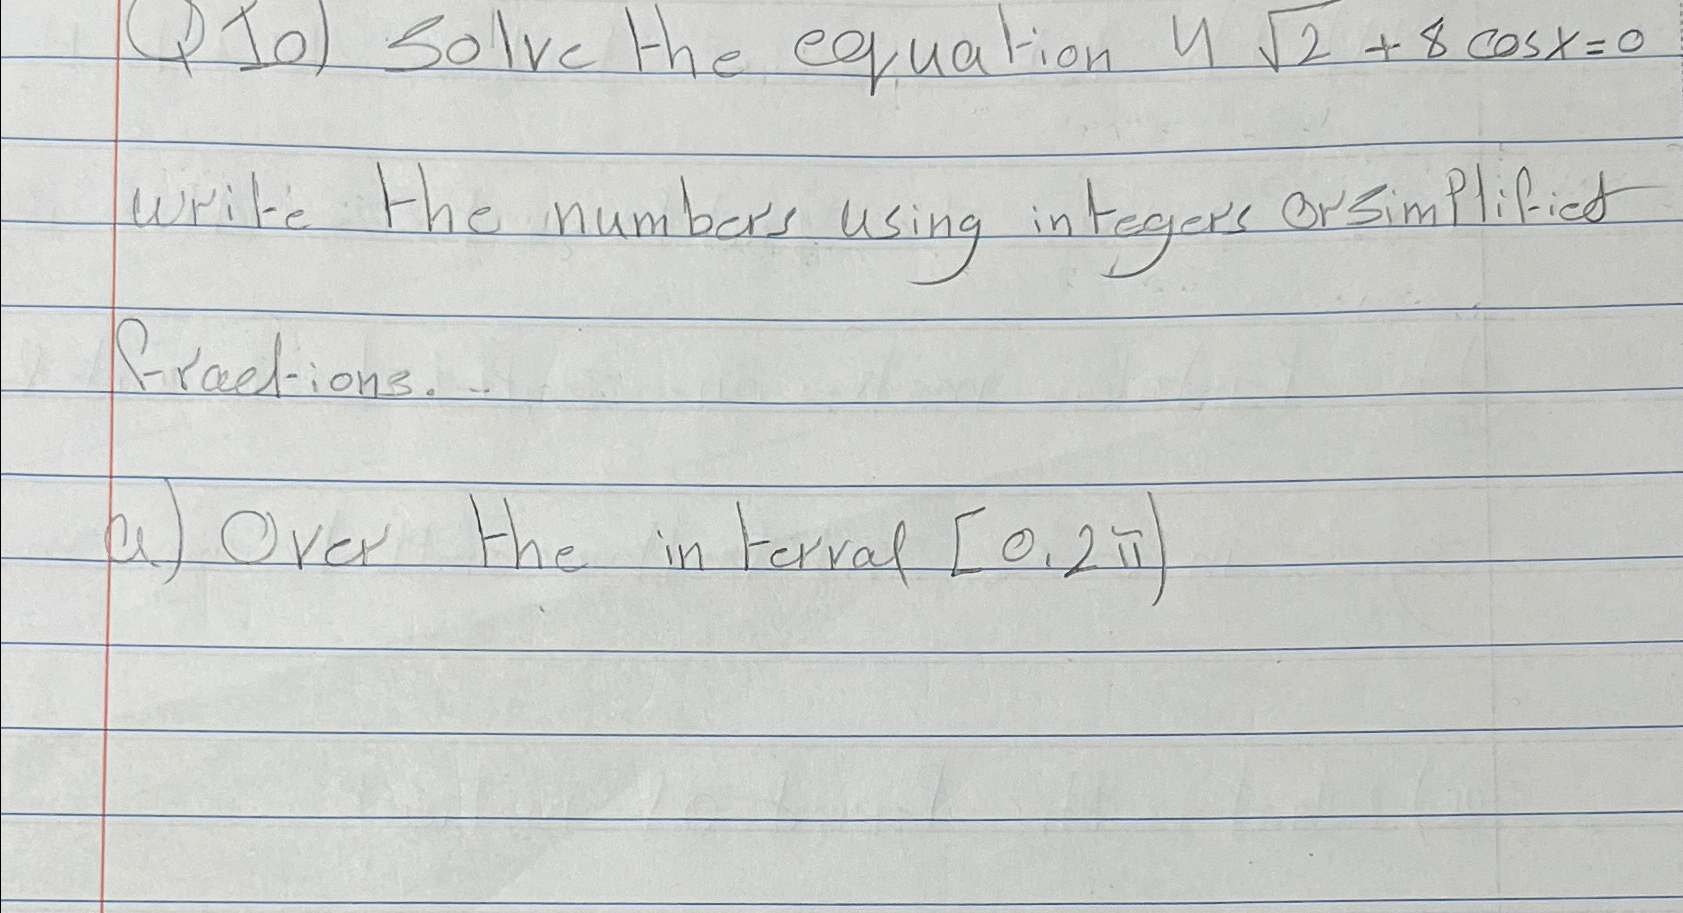 Q10) Solve the equation 4 √2 + 8 cosx=0
write the numbers using integers or simplified
fractions.
a) Over the interval [0.2π)